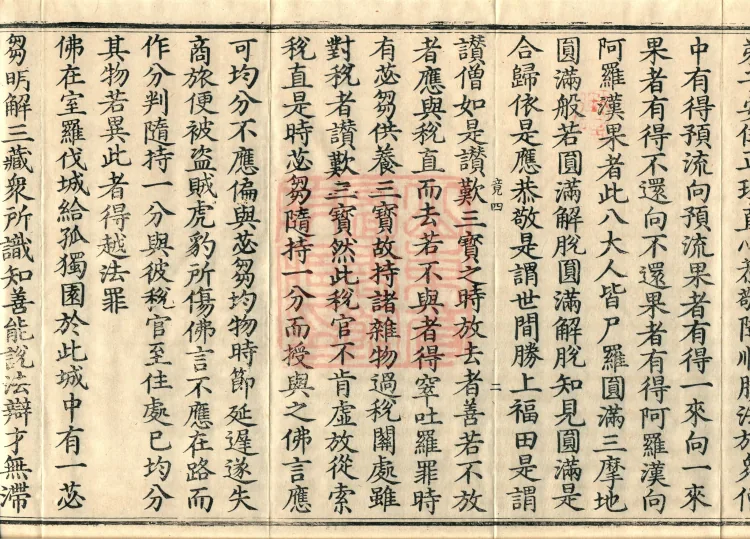 中有得預流向預流果者有得一來向一來
果者有得不還向不還果者有得阿羅漢向
阿羅漢果者此八大人皆尸羅圓滿三摩地
圓滿般若圓滿解脫圓滿解脫知見圓滿是
合歸依是應恭敬是謂世間勝上福田是謂
竟四 二
讃僧如是讃歎三寳之時放去者善若不放
者應與稅直而去若不與者得窣吐羅罪時
有苾芻供養三寳故持諸雜物過稅關處雖
對稅者讃歎三寳然此稅官不肯虛放從索
稅直是時苾芻隨持一分而授與之佛言應
可均分不應偏與苾芻均物時節延遲遂失
商旅便被盜賊虎豹所傷佛言不應在路而
作分判隨持一分與彼稅官至住處已均分
其物若異此者得越法罪
佛在室羅伐城給孤獨園於此城中有一苾
芻明解三藏衆所識知善能說法辯才無滯